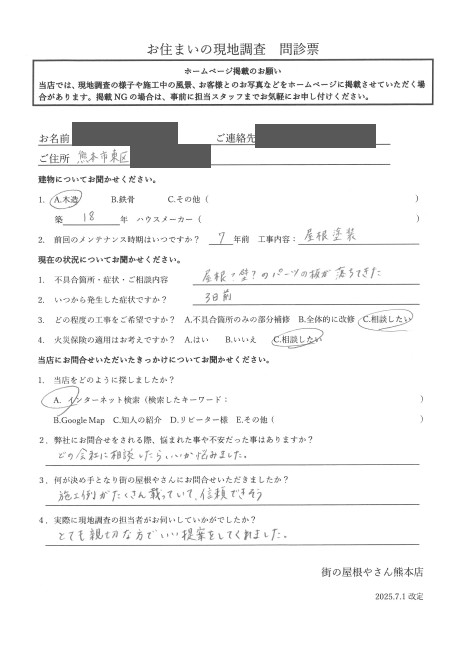 お住まいの現地調査　問診票
ホームページ掲載のお願い
当店では、現地調査の様子や施工中の風景、お客様とのお写真などをホームページに掲載させていただく場
合があります。掲載NGの場合は、事前に担当スタッフまでお気軽にお申し付けください。
お名前　ご連絡先
ご住所　熊本市東区
建物についてお聞かせください。
1. A.木造　B.鉄骨　C.その他（　）
築　18　年　ハウスメーカー（　）
2. 前回のメンテナンス時期はいつですか？　7　年前　工事内容：屋根塗装
現在の状況についてお聞かせください。
1. 不具合箇所・症状・ご相談内容　屋根？壁？のパーツの板が落ちてきた
2. いつから発生した症状ですか？　3日前
3. どの程度の工事をご希望ですか？　A.不具合箇所のみの部分補修　B.全体的に改修　C.相談したい
4. 火災保険の適用はお考えですか？　A.はい　B.いいえ　C.相談したい
当店にお問合せいただいたきっかけについてお聞かせください。
1. 当店をどのように探しましたか？
A. インターネット検索（検索したキーワード：　）
B.Google Map　C.知人の紹介　D.リピーター様　E.その他（　）
2. 弊社にお問合せをされる際、悩まれた事や不安だった事はありますか？
どの会社に相談したらいいか悩みました。
3. 何が決め手となり街の屋根やさんにお問合せいただきましたか？
施工例がたくさん載っていて、信頼できそう
4. 実際に現地調査の担当者がお伺いしていかがでしたか？
とても親切な方でいい提案をしてくれました。
街の屋根やさん熊本店
2025.7.1 改定